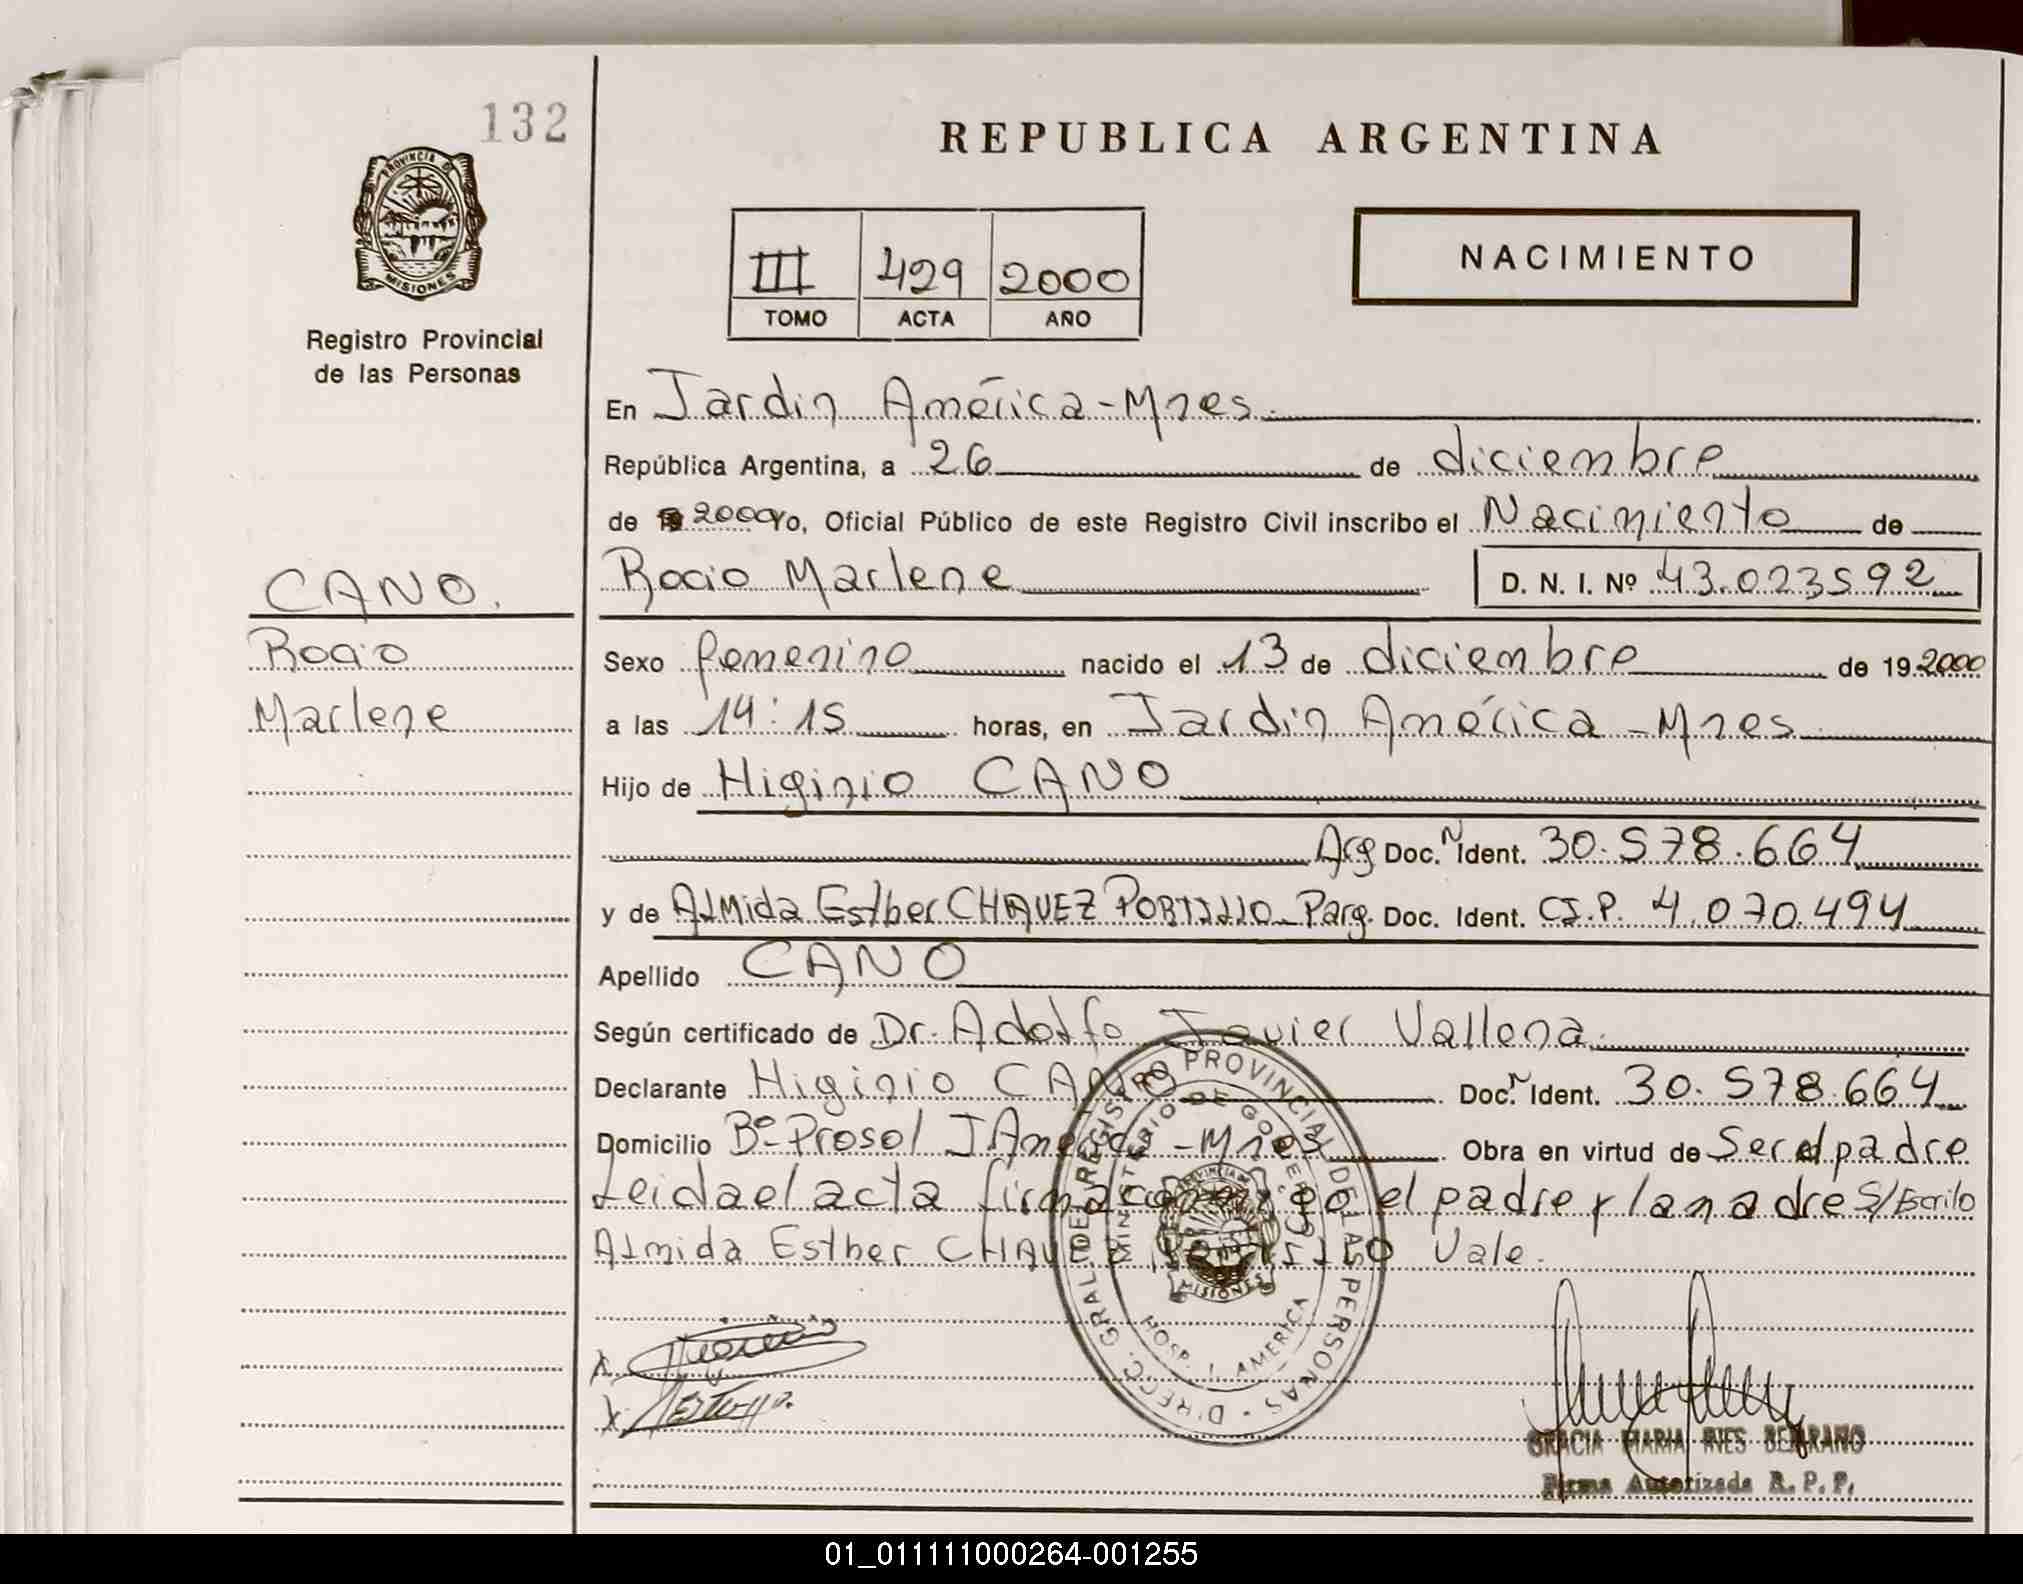 132
PROVINCIA DE
MISIONES
Registro Provincial
de las Personas
CANO.
Rocio
Marlene
REPUBLICA ARGENTINA
III 429 2000
TOMO ACTA AÑO
NACIMIENTO
En Jardin América-Mnes.
República Argentina, a 26 de diciembre
de 2000 Yo, Oficial Público de este Registro Civil inscribo el Nacimiento de
Rocio Marlene D. N. I. Nº 43.023592
Sexo femenino nacido el 13 de diciembre de 19 2000
a las 14:15 horas, en Jardin América-Mnes.
Hijo de Higinio CANO
Arg Doc.N Ident. 30.578.664
y de Almida Esther CHAVEZ PORTILLO Parg. Doc. Ident. CI.P. 4.070.494
Apellido CANO
Según certificado de Dr. Adolfo Javier Vallena.
Declarante Higinio CANO Doc.N Ident. 30.578.664
Domicilio Bº Prosol J América-Mnes Obra en virtud de Ser el padre
Leida el acta firma el padre y la madre S/Escrito
Almida Esther CHAVEZ PORTILLO Vale.
DIRECC. GRAL. DEL REGISTRO PROVINCIAL DE LAS PERSONAS
MINISTERIO DE GOBIERNO
PROVINCIA DE
MISIONES
HOSP. J. AMERICA
X
X
GRACIA MARIA INES BEJARANO
Firma Autorizada R. P. P.
01_011111000264-001255